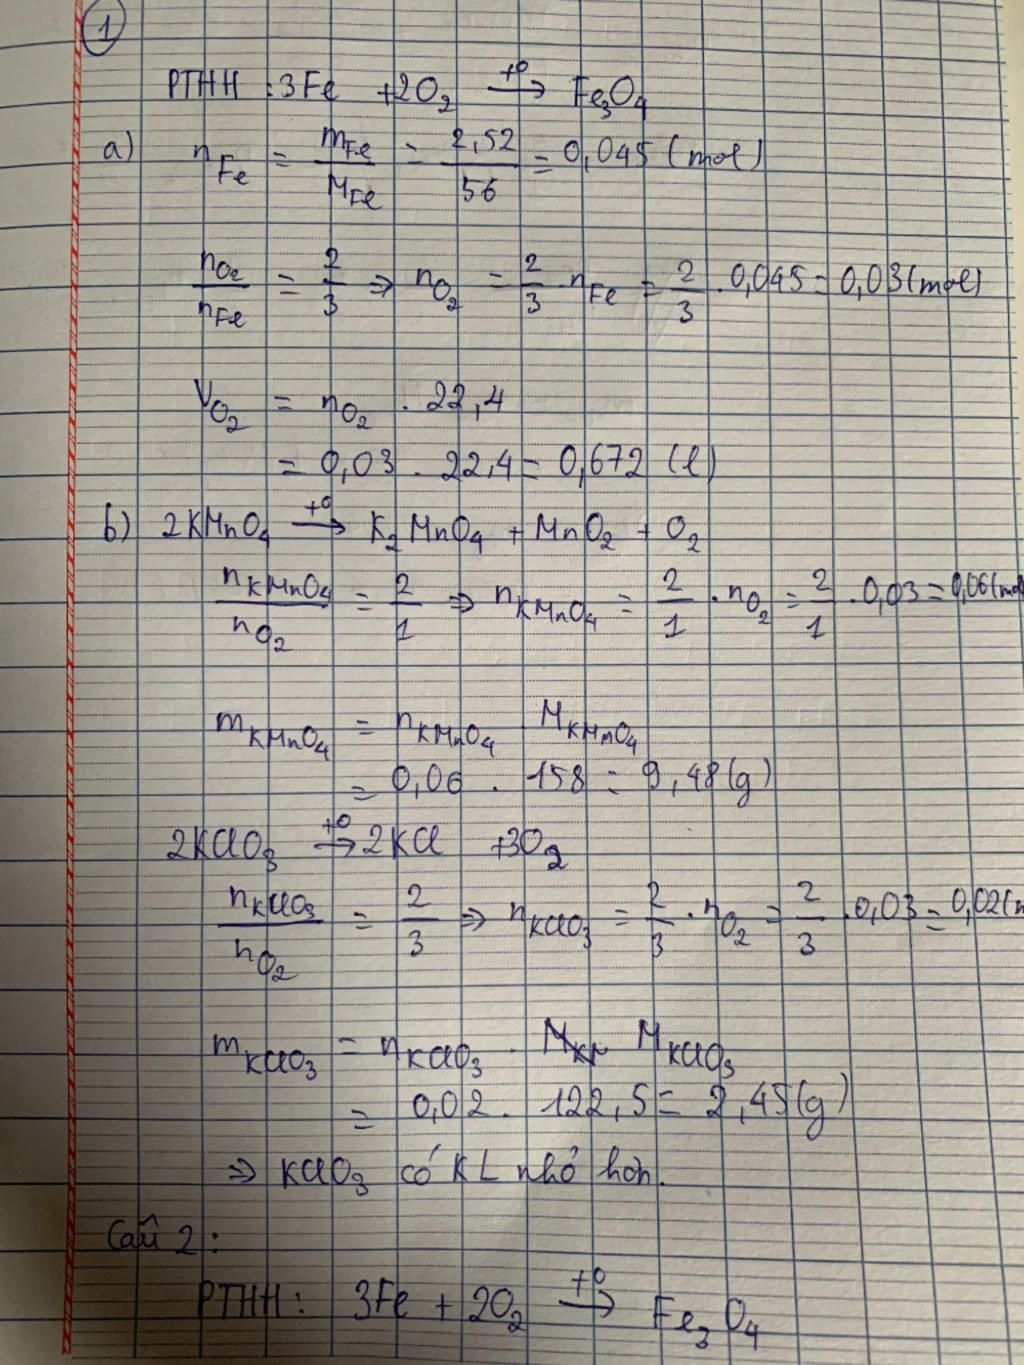 1
PTHH : 3Fe + 2O₂ →(t⁰) Fe₃O₄
a) n_Fe = m_Fe / M_Fe = 2,52 / 56 = 0,045 (mol)
n_O₂ / n_Fe = 2/3 ⇒ n_O₂ = 2/3 . n_Fe = 2/3 . 0,045 = 0,03 (mol)
V_O₂ = n_O₂ . 22,4
= 0,03 . 22,4 = 0,672 (l)
b) 2KMnO₄ →(t⁰) K₂MnO₄ + MnO₂ + O₂
n_KMnO₄ / n_O₂ = 2/1 ⇒ n_KMnO₄ = 2/1 . n_O₂ = 2/1 . 0,03 = 0,06 (mo
m_KMnO₄ = n_KMnO₄ . M_KMnO₄
= 0,06 . 158 = 9,48 (g)
2KClO₃ →(t⁰) 2KCl + 3O₂
n_KClO₃ / n_O₂ = 2/3 ⇒ n_KClO₃ = 2/3 . n_O₂ = 2/3 . 0,03 = 0,02 (m
m_KClO₃ = n_KClO₃ . M_KClO₃
= 0,02 . 122,5 = 2,45 (g)
⇒ KClO₃ có KL nhỏ hơn.
Câu 2 :
PTHH : 3Fe + 2O₂ →(t⁰) Fe₃O₄